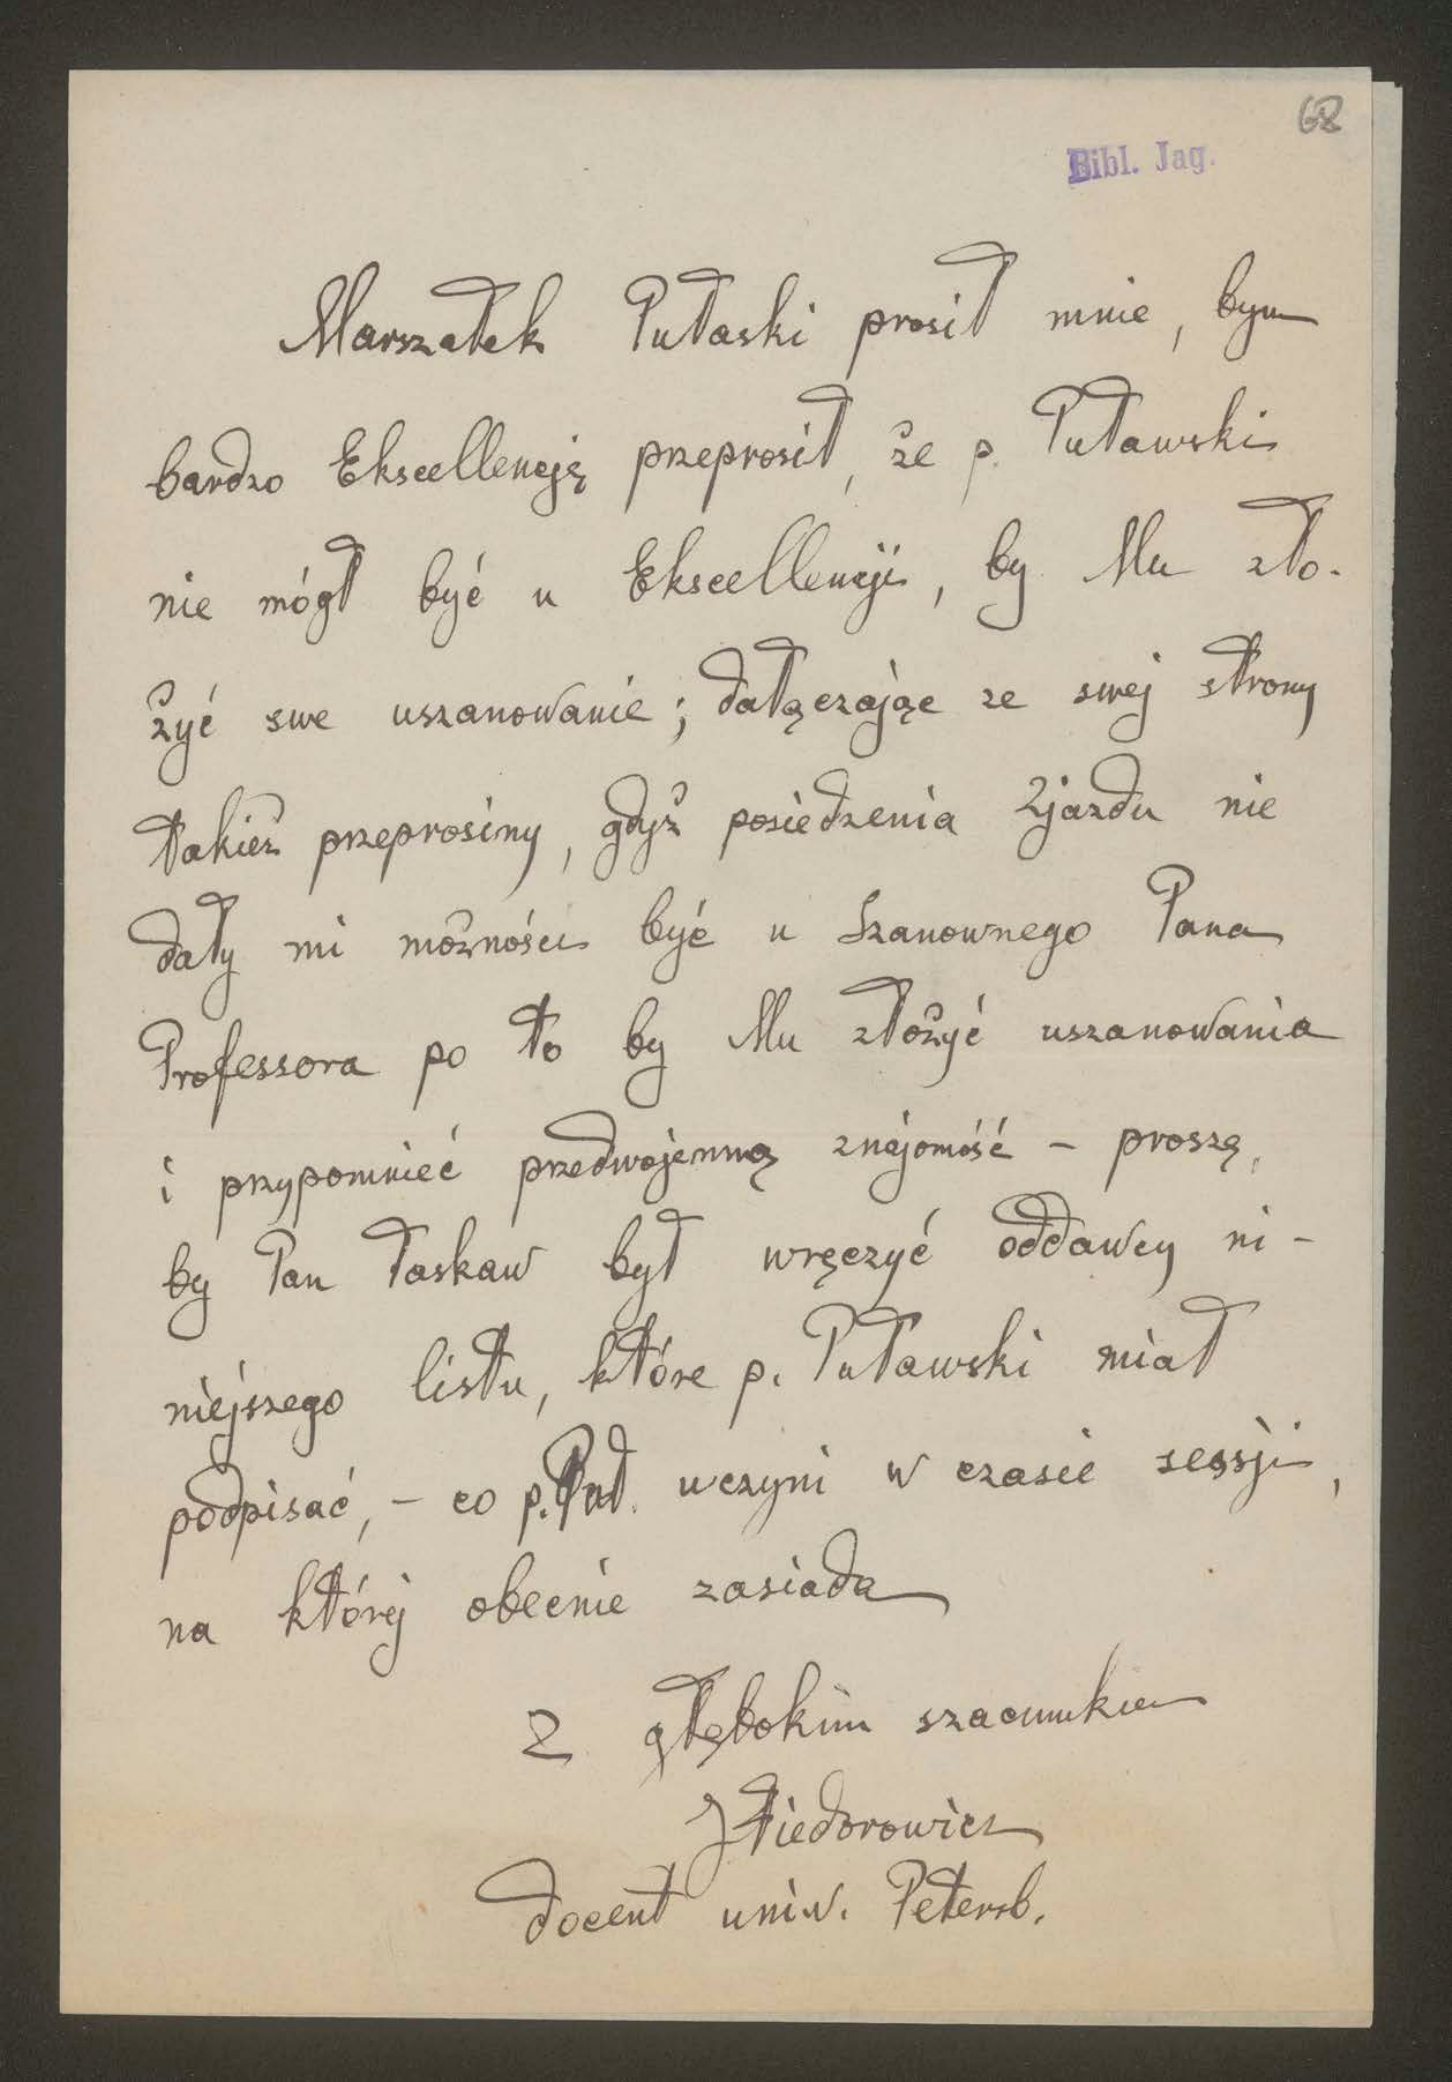 68
Bibl. Jag.
Marszałek Pułaski prosił mnie, bym
bardzo Ekscellencję przeprosił, że p. Puławski
nie mógł być u Ekscellencji, by Mu zło-
żyć swe uszanowanie; dałączając ze swej strony
takież przeprosiny, gdyż posiedzenia Zjazdu nie
dały mi możności być u Szanownego Pana
Professora po to by Mu złożyć uszanowania
i przypomnieć przedwojenną znajomość – proszę,
by Pan łaskaw był wręczyć oddawcy ni-
niejszego listu, które p. Puławski miał
podpisać, – co p. Puł. uczyni w czasie sessji,
na której obecnie zasiada
Z głębokim szacunkiem
Fiedorowicz
docent uniw. Petersb.